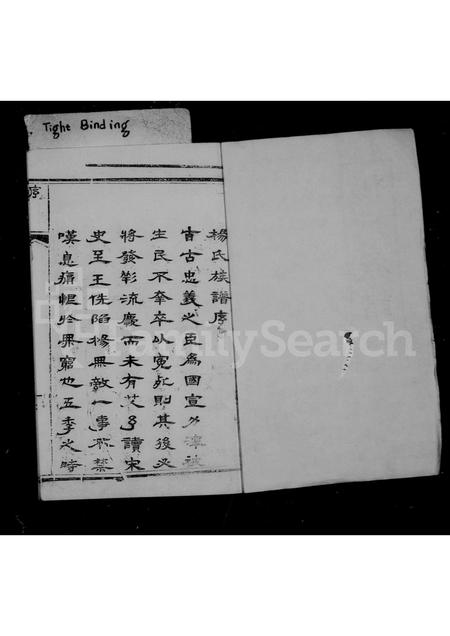 Tight Binding
楊氏族譜序
自古忠義之臣為國宣力澤被
生民不幸卒以冤死則其後必
將發彰流慶而未有艾予讀宋
史至王侁陷楊無敵一事不禁
嘆息痛恨於無窮也五季之時
序
FamilySearch